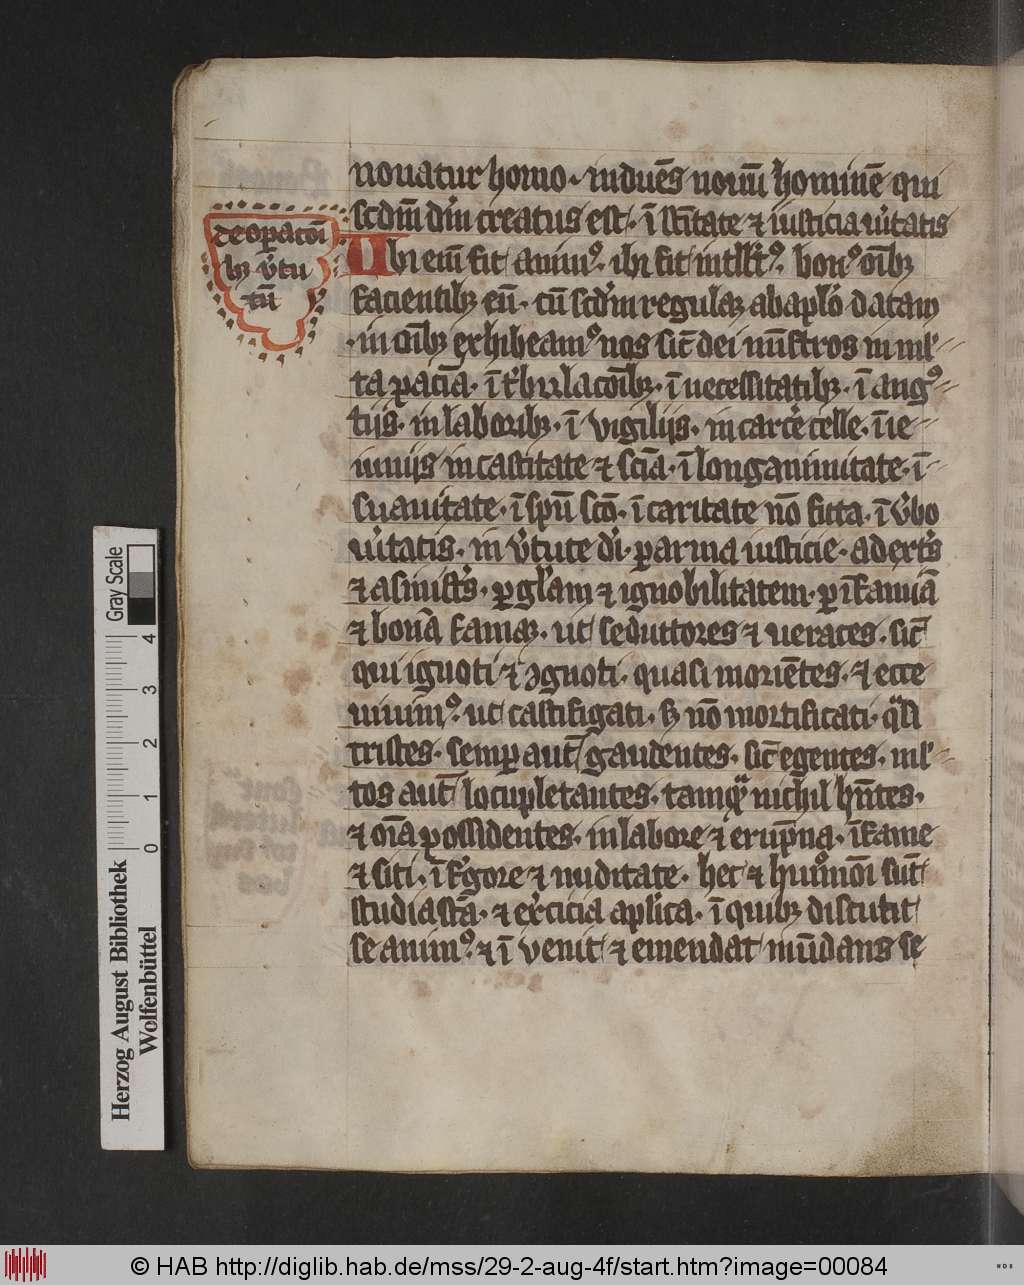 nouatur homo · induēs nouū hominē qui
scdm̄ dm̄ creatus est · ī scītate ⁊ iusticia ūitatis
de opatoī
bꝫ v̄tu
tū
Ubi eī fit animꝰ · ibi fit intllc̄tꝰ · bonꝰ oībꝫ
facientibꝫ eū · cū scdm̄ regulaꝫ ab aplō datam
· in oībꝫ exhibeamꝰ nos sic̄ dei mīstros in ml̄
ta paciā · ī tͥbulacōībꝫ · ī necessitatibꝫ · ī angꝰ
tiis · in laboribꝫ · ī vigiliis · in carcēe · ī ie
iuniis in castitate ⁊ sciā · ī longanimitate · ī
suauitate · ī spū scō · ī caritate nō ficta · ī v̄bo
ūitatis · in v̄tute dī · ꝑ arma iusticie · a dextrͥs
⁊ a sinistͥs · ꝑ gl̄am ⁊ ignobilitatem · ꝑ ifamiā
⁊ bonā famaꝫ · ut seductores ⁊ ueraces · sic̄
qui ignoti ⁊ ꝯgnoti · quasi moriētes · ⁊ ecce
uiuimꝰ · ut castigati · sꝫ nō mortificati · qͣsi
tristes · semꝑ aut̄ gaudentes · sic̄ egentes · ml̄
tos aut̄ locupletantes · tamqͣ nichil hn̄tes ·
⁊ oīa possidentes · in labore ⁊ erūpna · ī fame
⁊ siti · ī fͥgore ⁊ nuditate · hec ⁊ huiꝰmōi sūt
studia scā · ⁊ ex̄cicia aplica · ī quibꝫ discutit
se animꝰ ⁊ ī venit ⁊ emendat mūdans se
Gray Scale
4
3
2
1
0
Herzog August Bibliothek
Wolfenbüttel
© HAB http://diglib.hab.de/mss/29-2-aug-4f/start.htm?image=00084